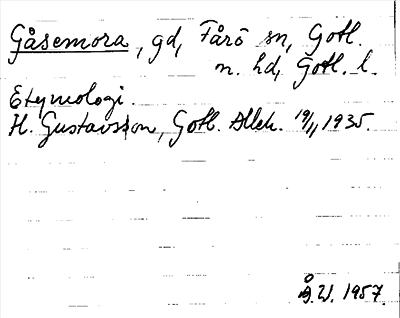 Gåsemora, gd, Fårö sn, Gotl.
n. hd, Gotl. l.
Etymologi.
H. Gustavsson, Gotl. Alleh. 19/11 1935.
Å.W. 1957.